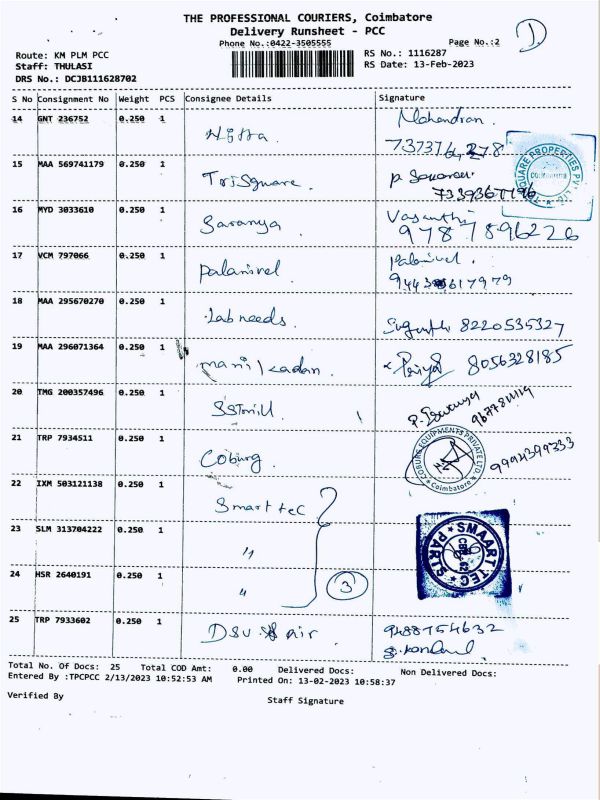 THE PROFESSIONAL COURIERS, Coimbatore
Delivery Runsheet - PCC
Phone No.:0422-3505555 Page No.:2
Route: KM PLM PCC RS No.: 1116287
Staff: THULASI RS Date: 13-Feb-2023
DRS No.: DCJB111628702
S No Consignment No Weight PCS Consignee Details Signature
14 GNT 236752 0.250 1 Mahendran.
15 MAA 569741179 0.250 1 TriSquare.
SQUARE PROPERTIES PVT LTD
16 MYD 3033610 0.250 1 Saranya Vasanthi
9787896226
17 VCM 797066 0.250 1 Palanivel Palanivel.
18 MAA 295670270 0.250 1 Lab needs. 8220535327
19 MAA 296071364 0.250 1 manikadan. Priya 8056328185
20 TMG 200357496 0.250 1
21 TRP 7934511 0.250 1 Coburg. 9994399333
COBURG EQUIPMENTS PRIVATE LTD
Coimbatore
22 IXM 503121138 0.250 1 Smart tec
23 SLM 313704222 0.250 1 "
SMAART TEC PARTS
24 HSR 2640191 0.250 1 " 3
25 TRP 7933602 0.250 1 air. 9488754632
Total No. Of Docs: 25 Total COD Amt: 0.00 Delivered Docs: Non Delivered Docs:
Entered By :TPCPCC 2/13/2023 10:52:53 AM Printed On: 13-02-2023 10:58:37
Verified By Staff Signature